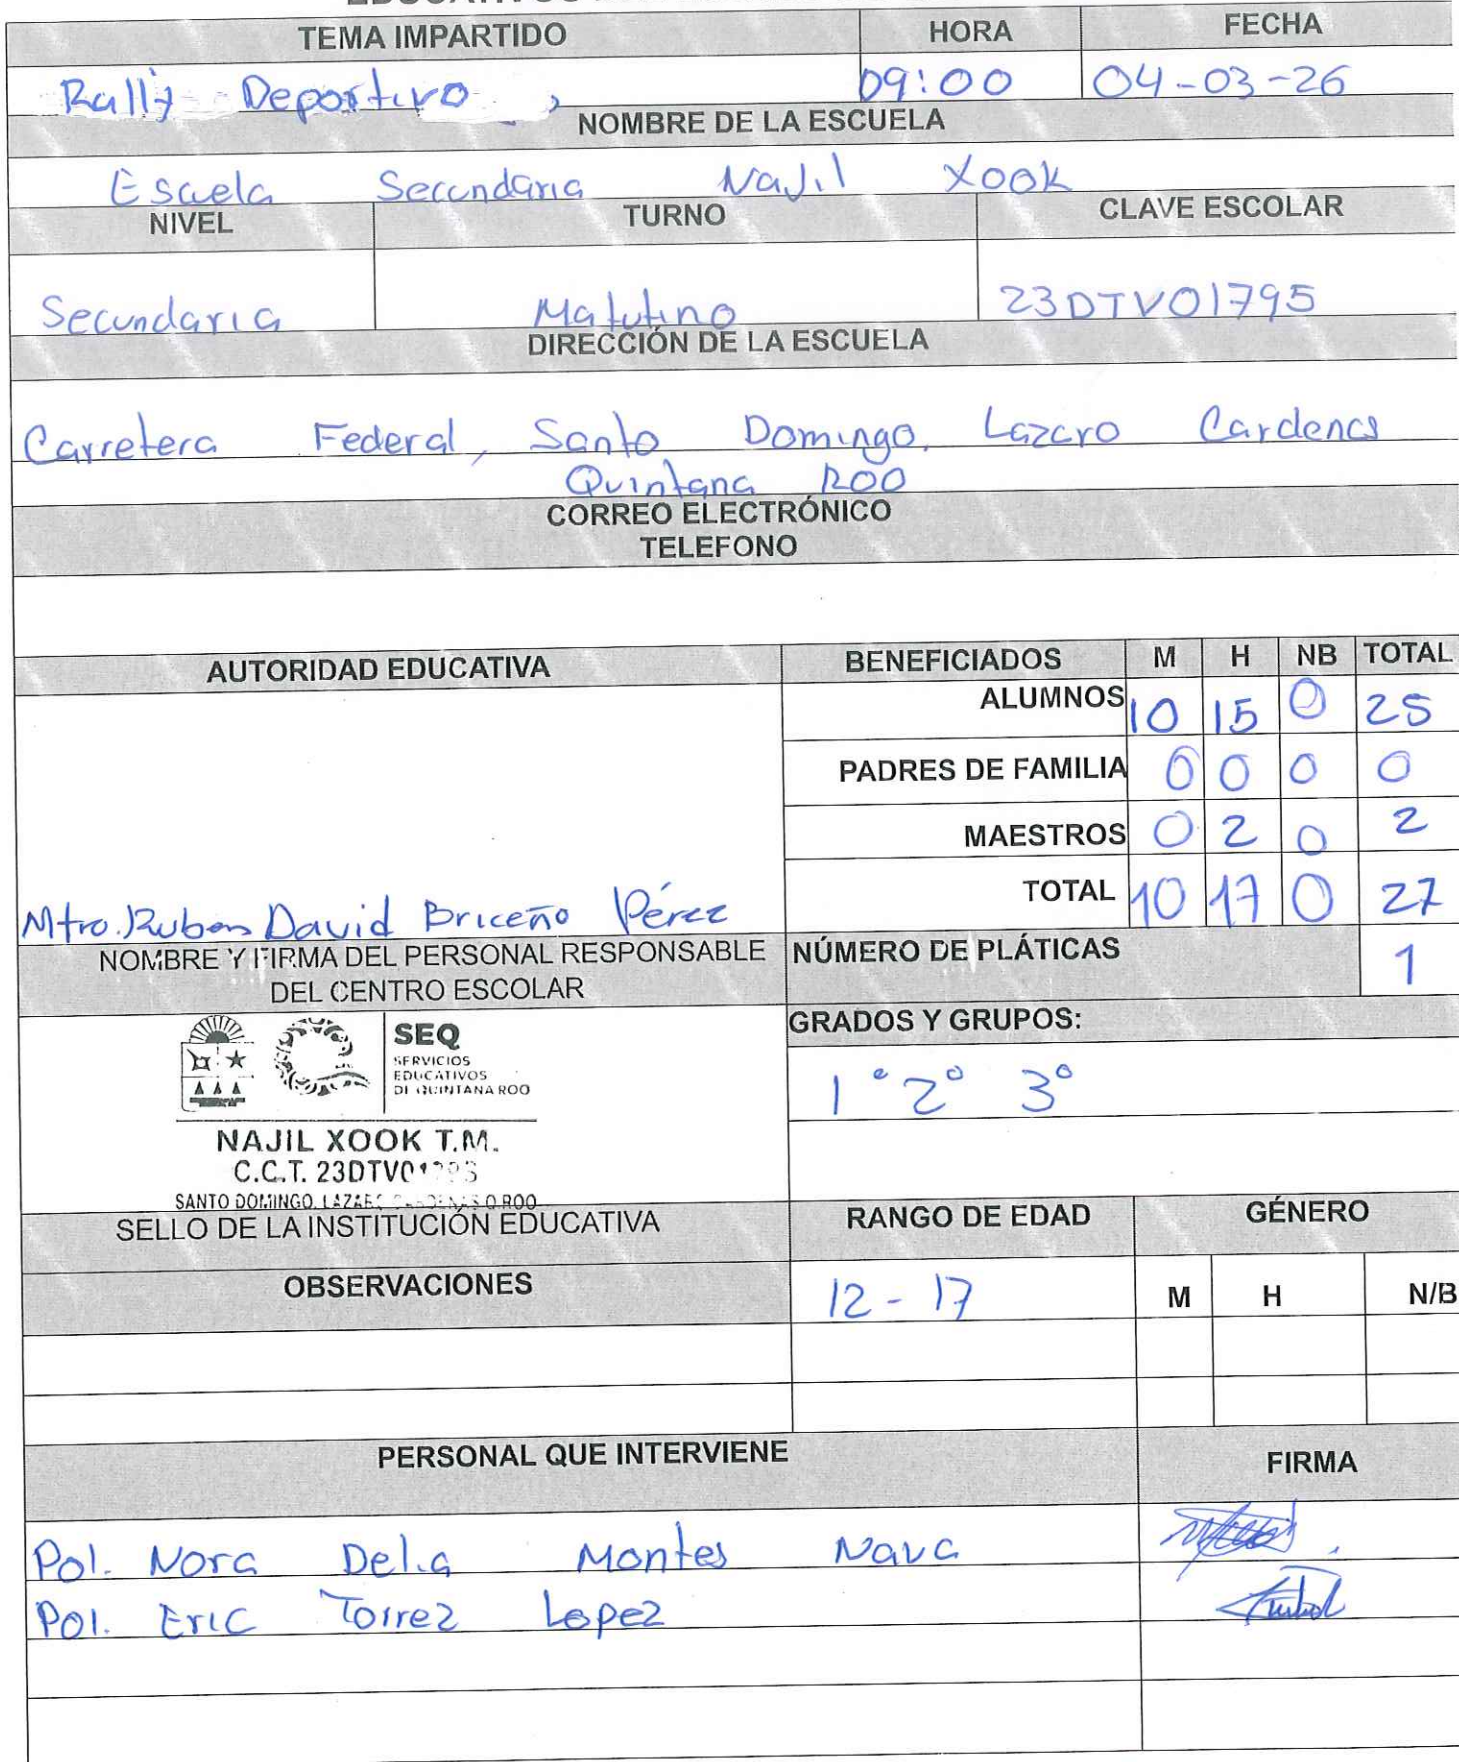 TEMA IMPARTIDO HORA FECHA
Rally Deportivo , 09:00 04-03-26
NOMBRE DE LA ESCUELA
Escuela Secundaria Najil Xook
NIVEL TURNO CLAVE ESCOLAR
Secundaria Matutino 23DTV01795
DIRECCIÓN DE LA ESCUELA
Carretera Federal, Santo Domingo. Lazaro Cardenas
Quintana ROO
CORREO ELECTRÓNICO
TELEFONO
AUTORIDAD EDUCATIVA BENEFICIADOS M H NB TOTAL
ALUMNOS 10 15 0 25
PADRES DE FAMILIA 0 0 0 0
MAESTROS 0 2 0 2
TOTAL 10 17 0 27
Mtro. Ruben David Briceño Pérez
NOMBRE Y FIRMA DEL PERSONAL RESPONSABLE NÚMERO DE PLÁTICAS 1
DEL CENTRO ESCOLAR
GRADOS Y GRUPOS:
1° 2° 3°
SEQ
SERVICIOS
EDUCATIVOS
DE QUINTANA ROO
NAJIL XOOK T.M.
C.C.T.
SANTO DOMINGO, Q.ROO
SELLO DE LA INSTITUCIÓN EDUCATIVA RANGO DE EDAD GÉNERO
OBSERVACIONES 12 - 17 M H N/B
PERSONAL QUE INTERVIENE FIRMA
Pol. Nora Delia Montes Nava
Pol. Eric Torrez Lopez